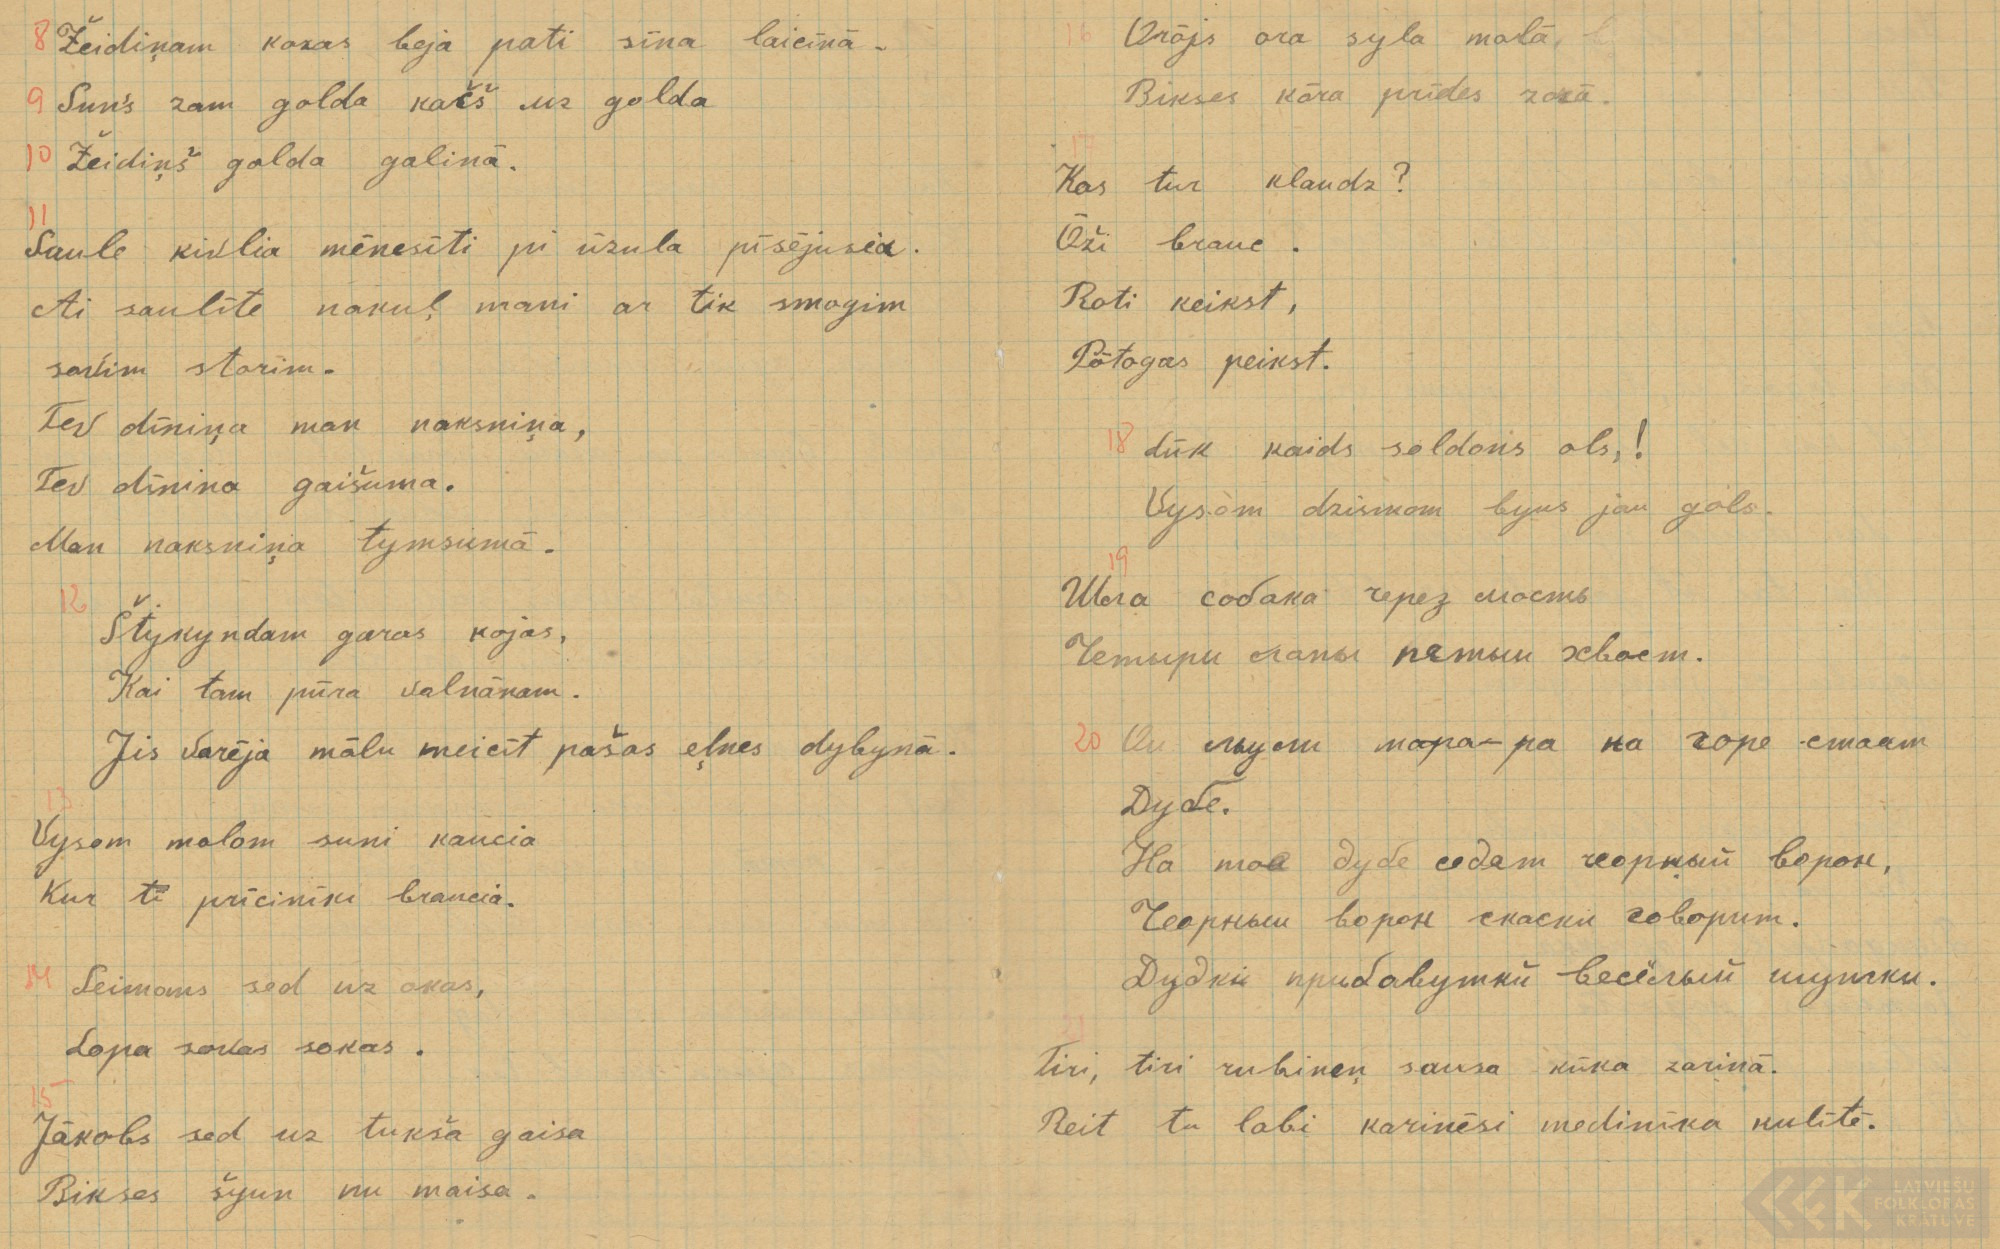 8 Žeidiņam kozas beja pati sīna laicinā.
9 Suns zam golda kačš uz golda
10 Žeidiņš golda galinā.
11
Saule kivlia mēnesīti pi ūzula pīsējusia.
Ai saulīte nakuļ mani ar tik smogim
sovim storim.
Tev dīniņa man naksniņa,
Tev dīnina gaišuma.
Man naksniņa tymsumā.
12
Štykyndam garas kojas,
Kai tam pūra valnānam.
Jis varēja mālu meicīt pašas eļnes dybynā.
13
Vysom molom suni kaucia
Kur tī prīcinīki braucia.
14 Seimans sed uz akas,
Lopa sovas sokas.
15
Jākobs sed uz tukša gaisa
Bikses šyun nu maisa.
16 Orōjs ora syla molā,
Bikses kōra prīdes zorā.
17
Kas tur klaudz?
Ōži brauc.
Roti keikst,
Pōtogas peikst.
18 Lūk kaids soldons ols,!
Vysōm dzismom byus jau gols.
19
Шла собака через мость
Четыри лапы пятыи хвост.
20 Ои люли тара-ра на горе стаат
Дубе.
На тоа дубе седят чеорный ворон,
Чеорныи ворон скаски говорит.
Дудки прибавуткй весёлый шутки.
21
Tiri, tiri rubineņ sausa kūka zarinā.
Reit tu labi karinēsi medinīka kulītē.
LATVIEŠU
FOLKLORAS
KRĀTUVE